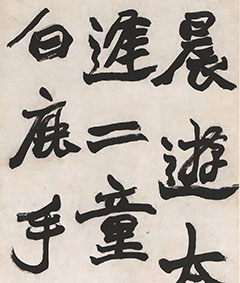 晨遊太
逢二童
白鹿手